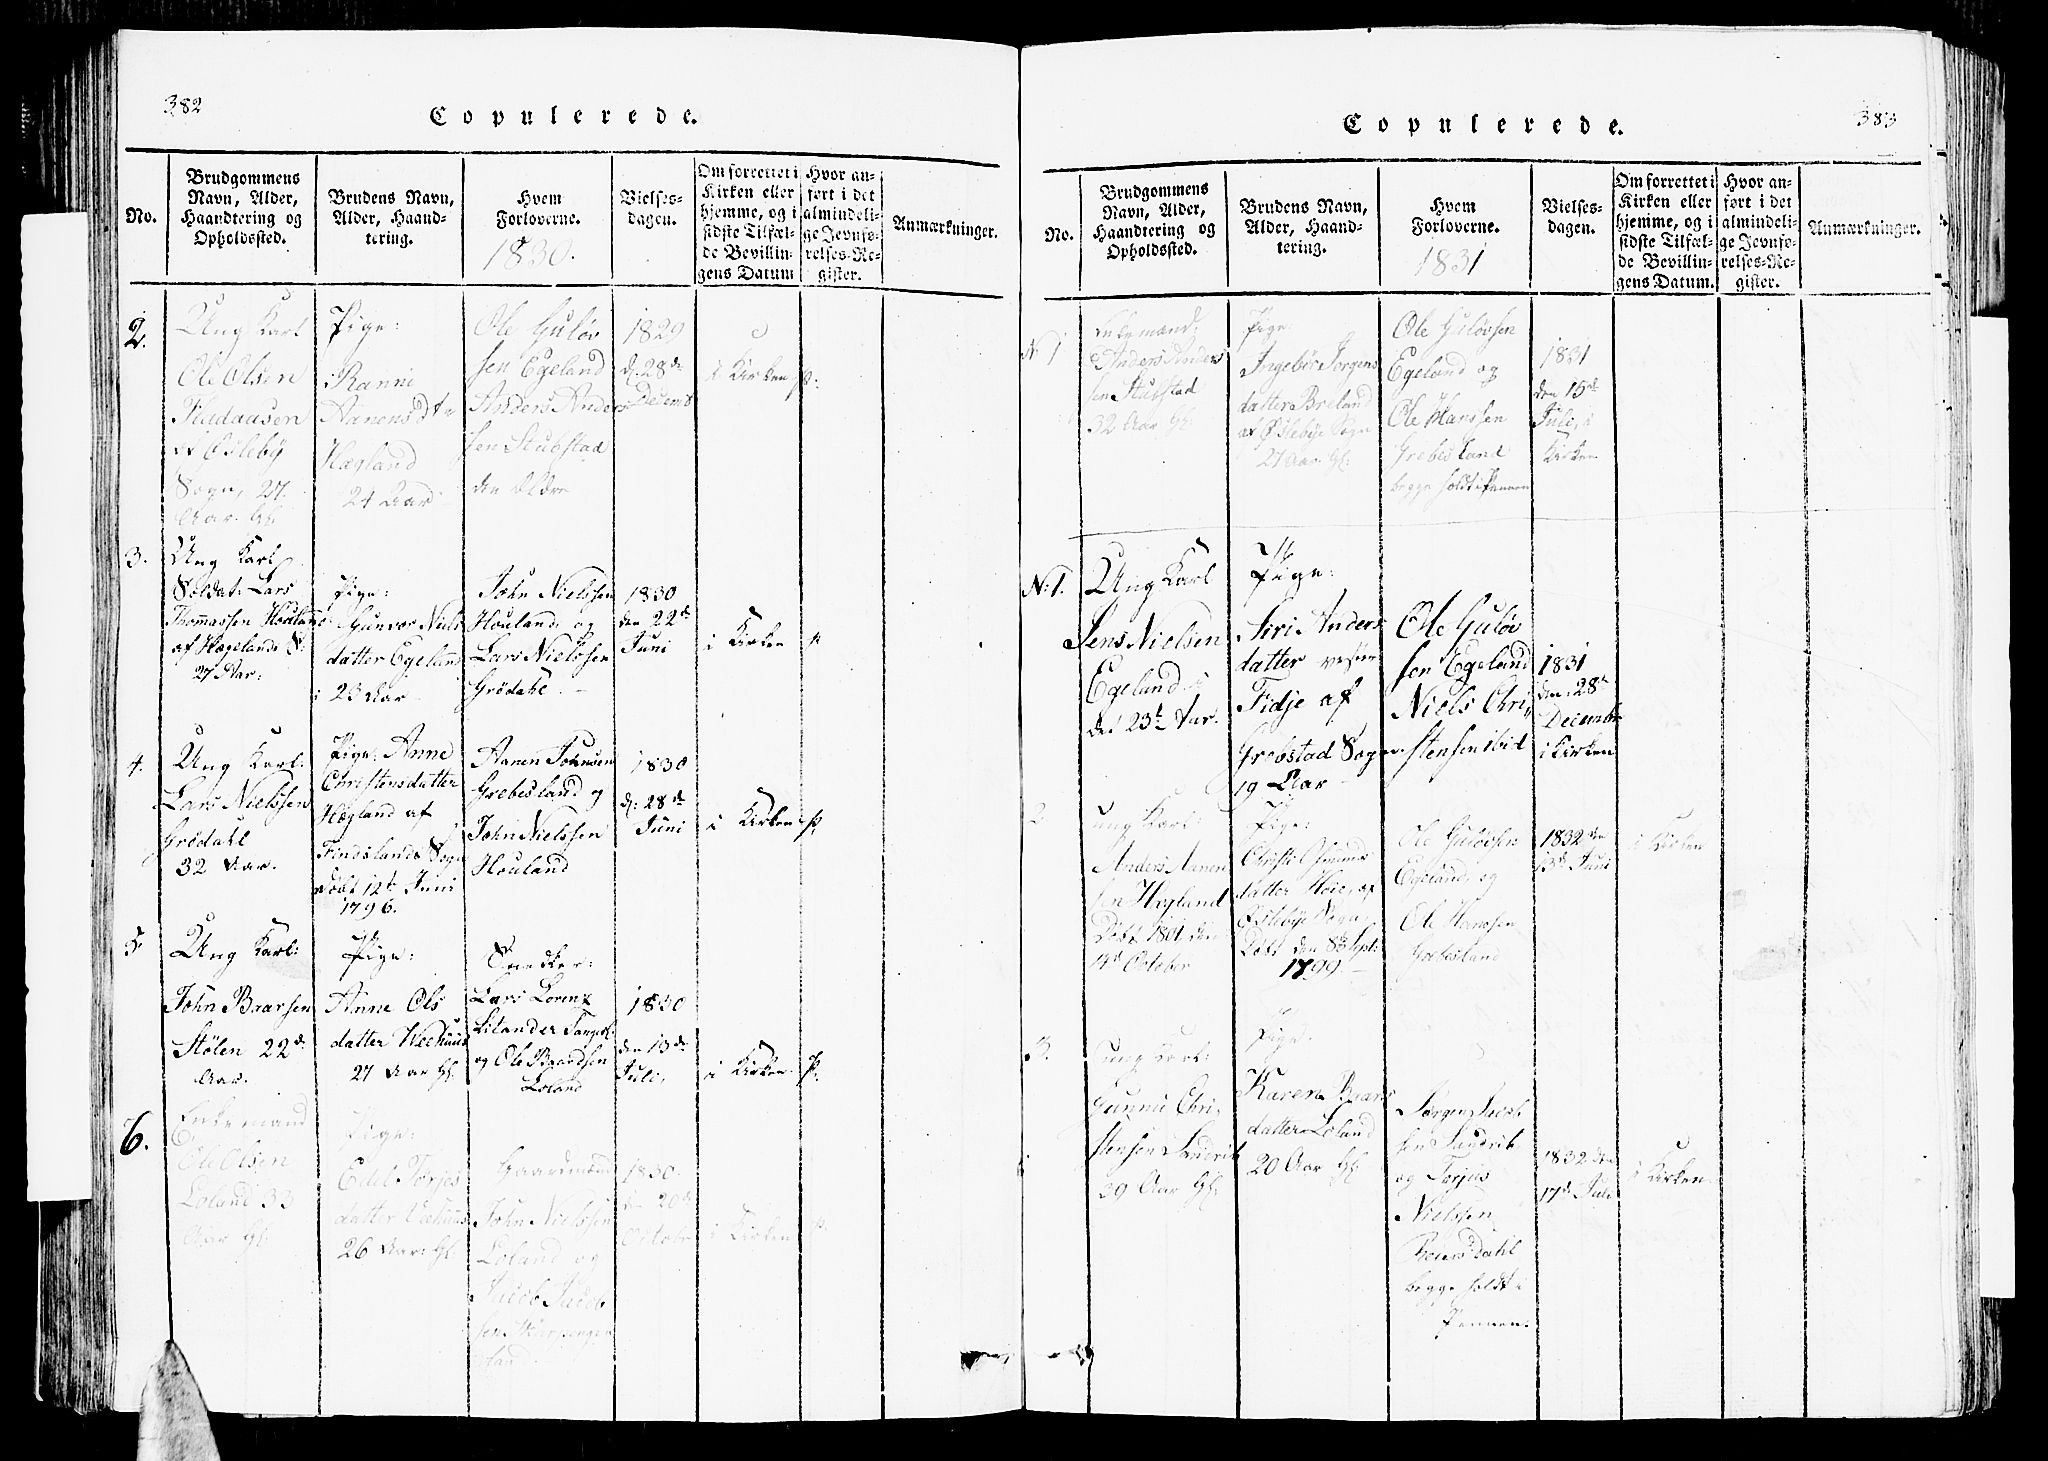 382
Copulerede.
No.
Brudgommens
Navn, Alder,
Haandtering og
Opholdssted.
Brudens Navn,
Alder, Haand-
tering.
Hvem
Forloverne.
1830.
Vielses-
dagen.
Om forrettet i
Kirken eller
hjemme, og i
sidste Tilfæl-
de Bevillin-
gens Datum
Hvor an-
ført i det
almindeli-
ge Jevnfø-
relses-Re-
gister.
Anmærkninger.
2.
Ung Karl
Ole Olsen
af Øslebÿ
Sogn, 27.
Aar. gl.
Pige:
Ranni
Aanensdtr
Hægland
24 Aar
Ole Guløv
sen Egeland
Anders Anders
sen Stubstad
den Ældre
1829
d. 28de
Decemb
i Kirken
p.
3.
Ung Karl
Soldat: Lars
Thomassen Houland
af Hægelands S:
27 Aar:
Pige:
Gunvor Niels
datter Egeland
23 Aar
John Nielssen
Houland og
Lars Nielssen
Grödahl.
1830
den 22de
Juni
i Kirken
p
4.
Ung Karl:
Lars Nielssen
Grödahl
32 Aar.
Pige: Anne
Christensdatter
Hægland af
Findslands Sogn
Döbt 12te Juni
1796.
Aanen Johnsen
Grebesland og
John Nielssen
Houland
1830
d: 28de
Juni
i Kirken
p.
5
Ung Karl:
John Baarsen
Stölen 22de
Aar.
Pige:
Anne Ols
datter Weehuus
27 Aar gl.
Snedker:
Lars Lorenz
Litander
og Ole Baardsen
Loland
1830
den 13de
Juli,
i Kirken
p.
6.
Enkemand
Ole Olsen
Loland 33
Aar gl:
Pige:
Edel Torjes
datter Veehuus
26 Aar: gl.
Gaardmænd
John Nielssen
Loland og
Jacob Jacob
sen
land
1830.
d. 20de
Octobr
i Kirken
p.
383
Copulerede.
No.
Brudgommens
Navn, Alder,
Haandtering og
Opholdssted.
Brudens Navn,
Alder, Haand-
tering.
Hvem
Forloverne.
1831
Vielses-
dagen.
Om forrettet i
Kirken eller
hjemme, og i
sidste Tilfæl-
de Bevillin-
gens Datum.
Hvor an-
ført i det
almindeli-
ge Jevnfø-
relses-Re-
gister.
Anmærkninger.
N 1
Enkemand:
Anders Anders
sen Stubstad
32 Aar gl:
Pige
Ingebör Jörgens
datter Breland
af Øslebÿe Sogn
27 Aar. gl:
Ole Guløvsen
Egeland og
Ole Hanssen
Grebesland
begge holdt i Pennen
1831
den 15de
Juli, i
Kirken
N: 1.
Ung Karl
Jens Nielsen
Egeland i
det 23de Aar.
Pige:
Siri Anders
datter
Fidje af
Grobstad Sogn
19 Aar
Ole Guløv
sen Egeland
Niels Chri
stensen ibid
1831
den 28de
Decembr
i Kirken
2
ung Karl:
Anders Aanen
sen Hægland
Döbt 1801 den
14de October
Pige:
datter Höie, af
Øslebÿe Sogn
Döbt den 8de Sept:
1799
Ole Guløvsen
Egeland, og
Ole Hanssen
Grebesland
1832 den
13de Juni
i Kirken
3.
ung Karl:
Gunnu Chri
stensen Sandrib
39 Aar gl:
Pige.
Karen Baars
datter Loland
20 Aar gl:
Jørgen Jacob
sen Sandrib
og Torjus
Nielssen
Reiersdahl
begge holdt i
Pennen.
1832 den
17de Juli
i Kirken.